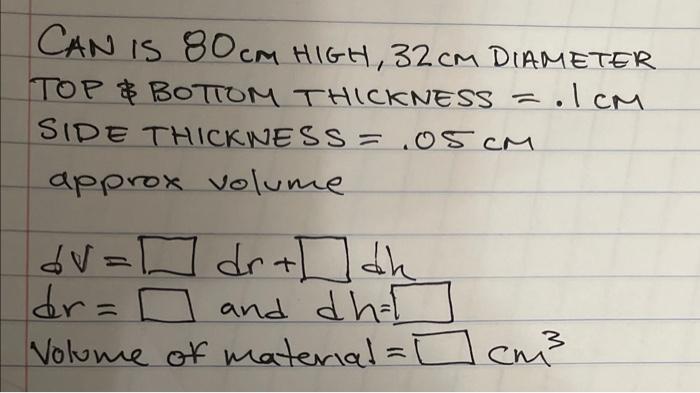 CAN IS 80CM HIGH, 32CM DIAMETER
TOP & BOTTOM THICKNESS = .1 CM
SIDE THICKNESS = .05 CM
approx volume
dV = □ dr + □ dh
dr = □ and dh=□
Volume of material = □ cm³